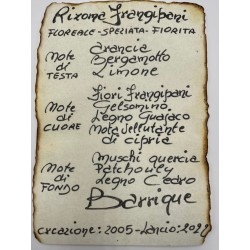 Rixoma Frangipani
FLOREALE-SPEZIATA-FIORITA
Note di TESTA
Arancia
Bergamotto
Limone
Note di CUORE
Fiori Frangipani
Gelsomino
Legno Guajaco
Note vellutante di cipria
Note di FONDO
Muschi quercia
Patchouly
Legno Cedro
Barrique
creazione: 2005 - Lancio: 202